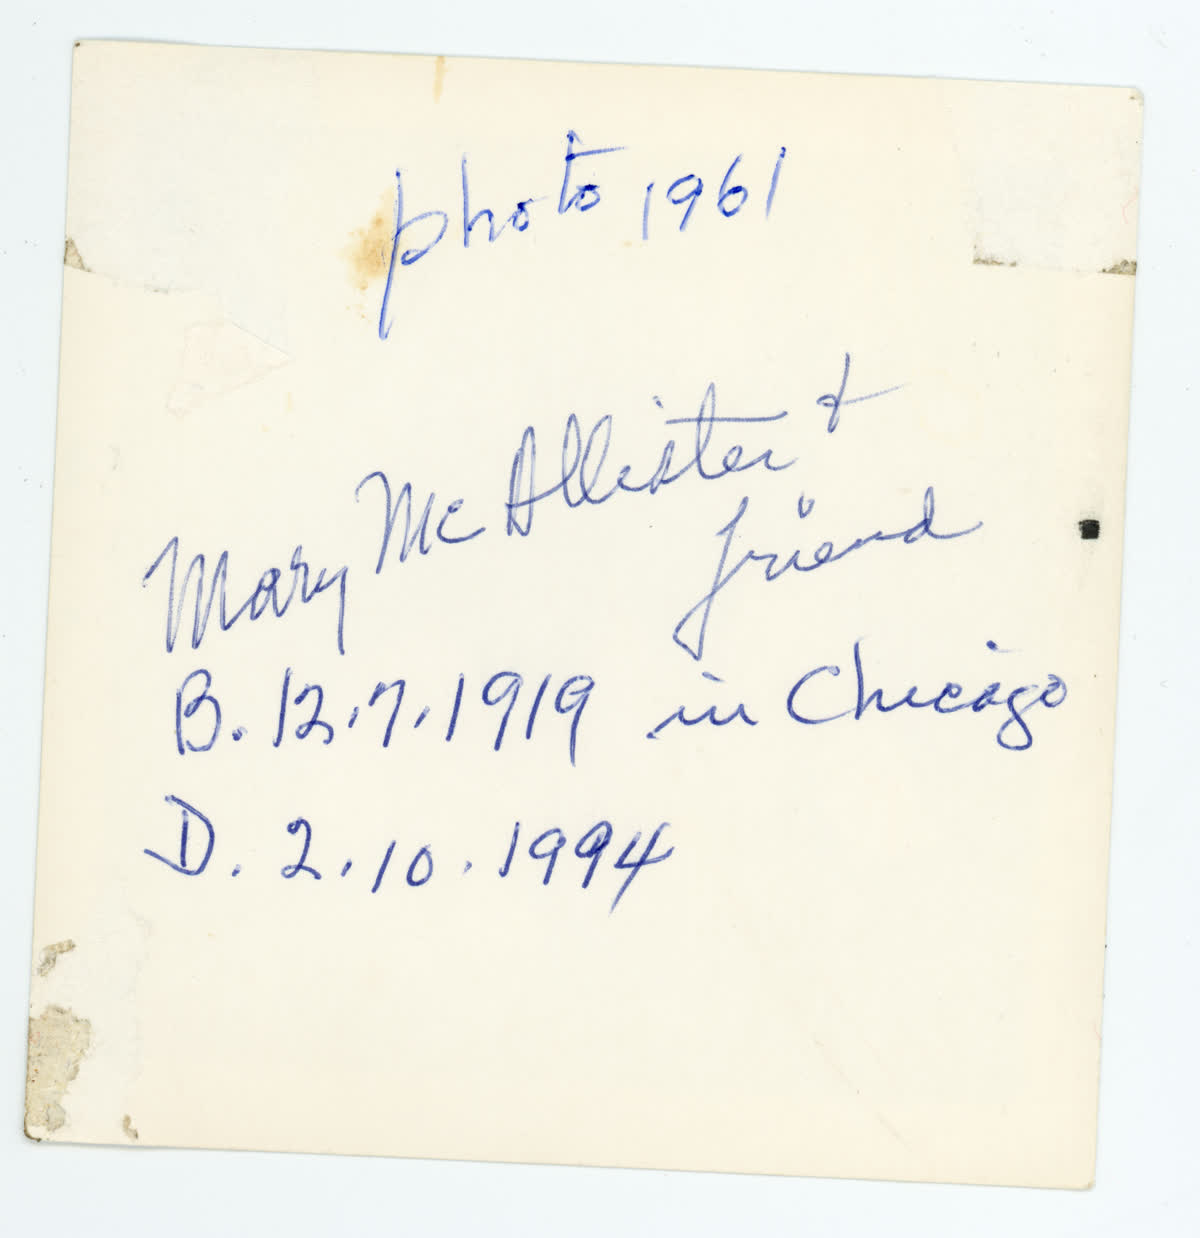 photo 1961
Mary McAllister &
friend
B. 12.7.1919 in Chicago
D. 2.10.1994